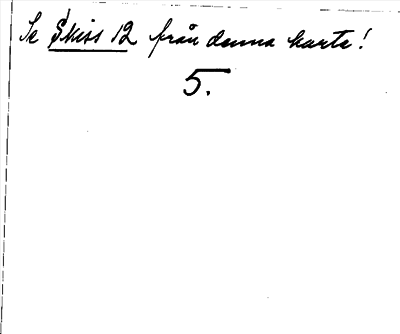 Se Skiss 12 från denna karta!
5.